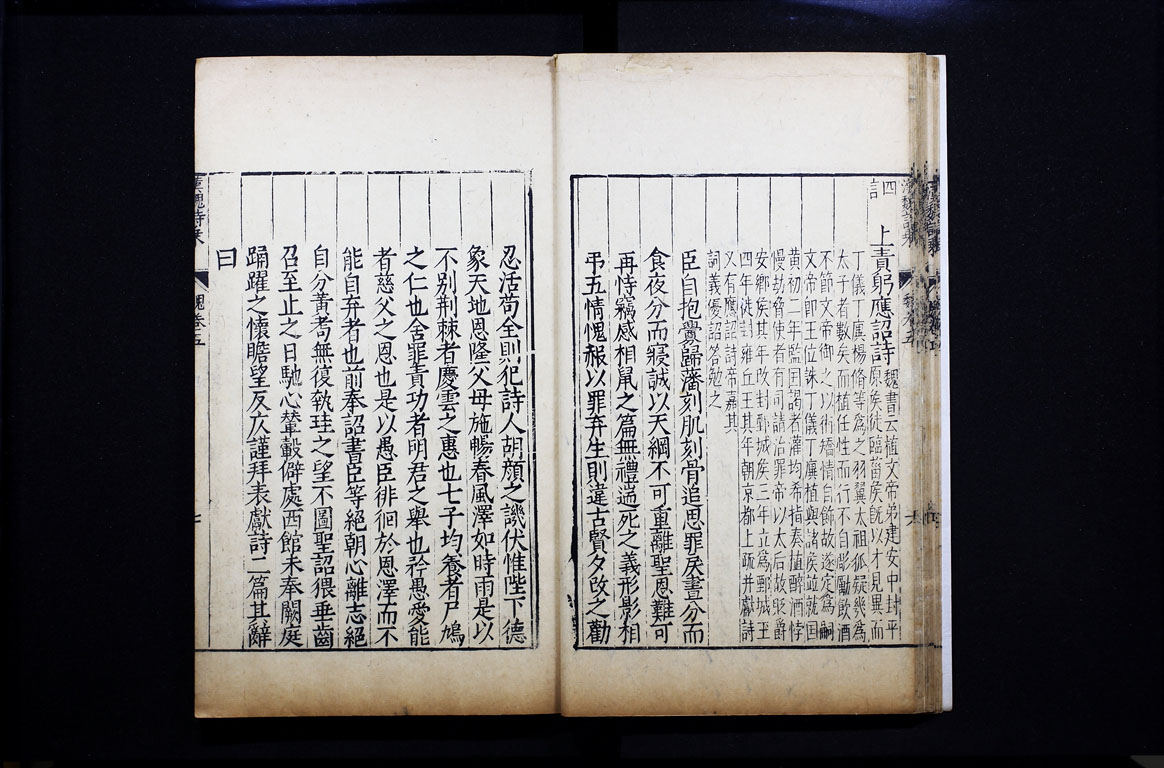 四言
上責躬應詔詩
魏書云植文帝弟建安中封平
原矦徙臨菑矦旣以才見異而
丁儀丁廙楊脩等爲之羽翼太祖狐疑幾爲
太子者數矣而植任性而行不自彫勵飲酒
不節文帝御之以術矯情自飾故遂定爲嗣
文帝卽王位誅丁儀丁廙植與諸矦竝就国
黃初二年監国謁者灌均希指奏植醉酒悖
慢劫脅使者有司請治罪帝以太后故貶爵
安鄉矦其年改封鄄城矦三年立爲鄄城王
四年徙封雍丘王其年朝京都上疏并獻詩
又有應詔詩帝嘉其
詞義優詔答勉之
臣自抱舋歸藩刻肌刻骨追思罪戾晝分而
食夜分而寢誠以天網不可重離聖恩難可
再恃竊感相鼠之篇無禮遄死之義形影相
弔五情愧赧以罪弃生則違古賢夕改之勸
忍活苟全則犯詩人胡顔之譏伏惟陛下德
象天地恩隆父母施暢春風澤如時雨是以
不别荆棘者慶雲之惠也七子均養者尸鳩
之仁也舍罪責功者明君之舉也矜愚愛能
者慈父之恩也是以愚臣徘徊於恩澤而不
能自弃者也前奉詔書臣等絕朝心離志絕
自分黃耇無復執珪之望不圖聖詔猥垂齒
召至止之日馳心輦轂僻處西館未奉闕庭
踊躍之懷瞻望反仄謹拜表獻詩二篇其辭
曰
魏卷五